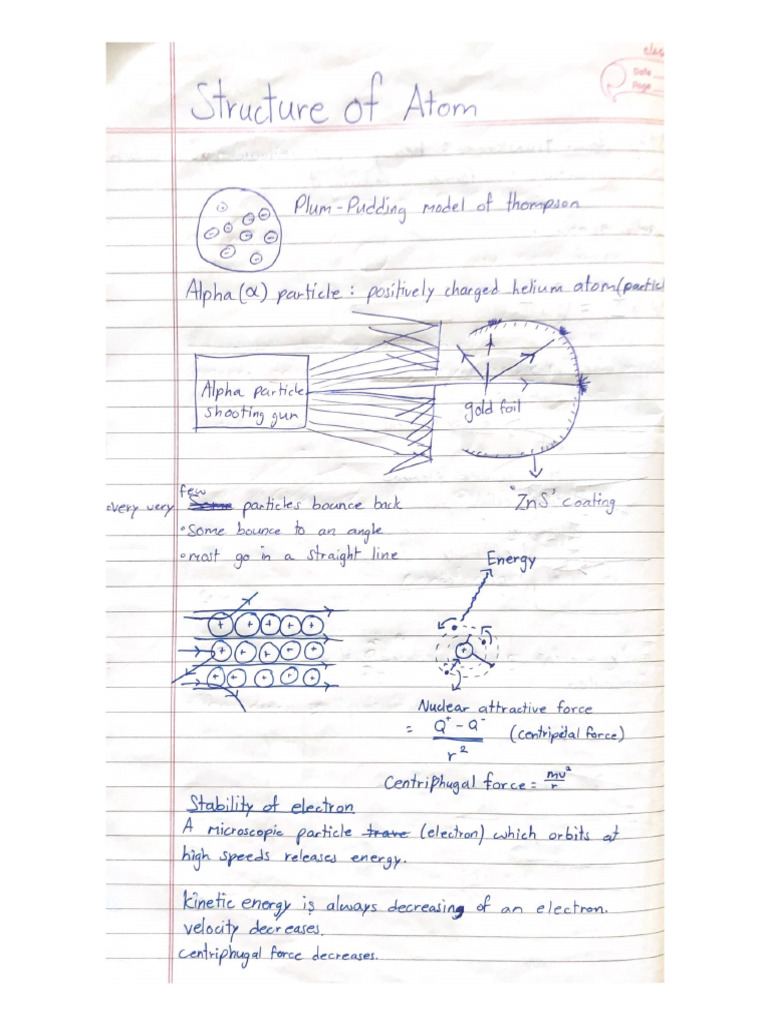 Date
Page
Structure of Atom
Plum-Pudding model of thompson
Alpha (α) particle : positively charged helium atom (partic
Alpha particle
shooting gun
gold foil
"ZnS" coating
• very very few some particles bounce back
• Some bounce to an angle
• most go in a straight line
Energy
Nuclear attractive force
= Q⁺ - Q⁻ / r² (centripetal force)
Centriphugal force = mv² / r
Stability of electron
A microscopic particle trave (electron) which orbits at
high speeds releases energy.
kinetic energy is always decreasing of an electron.
velocity decreases.
centriphugal force decreases.